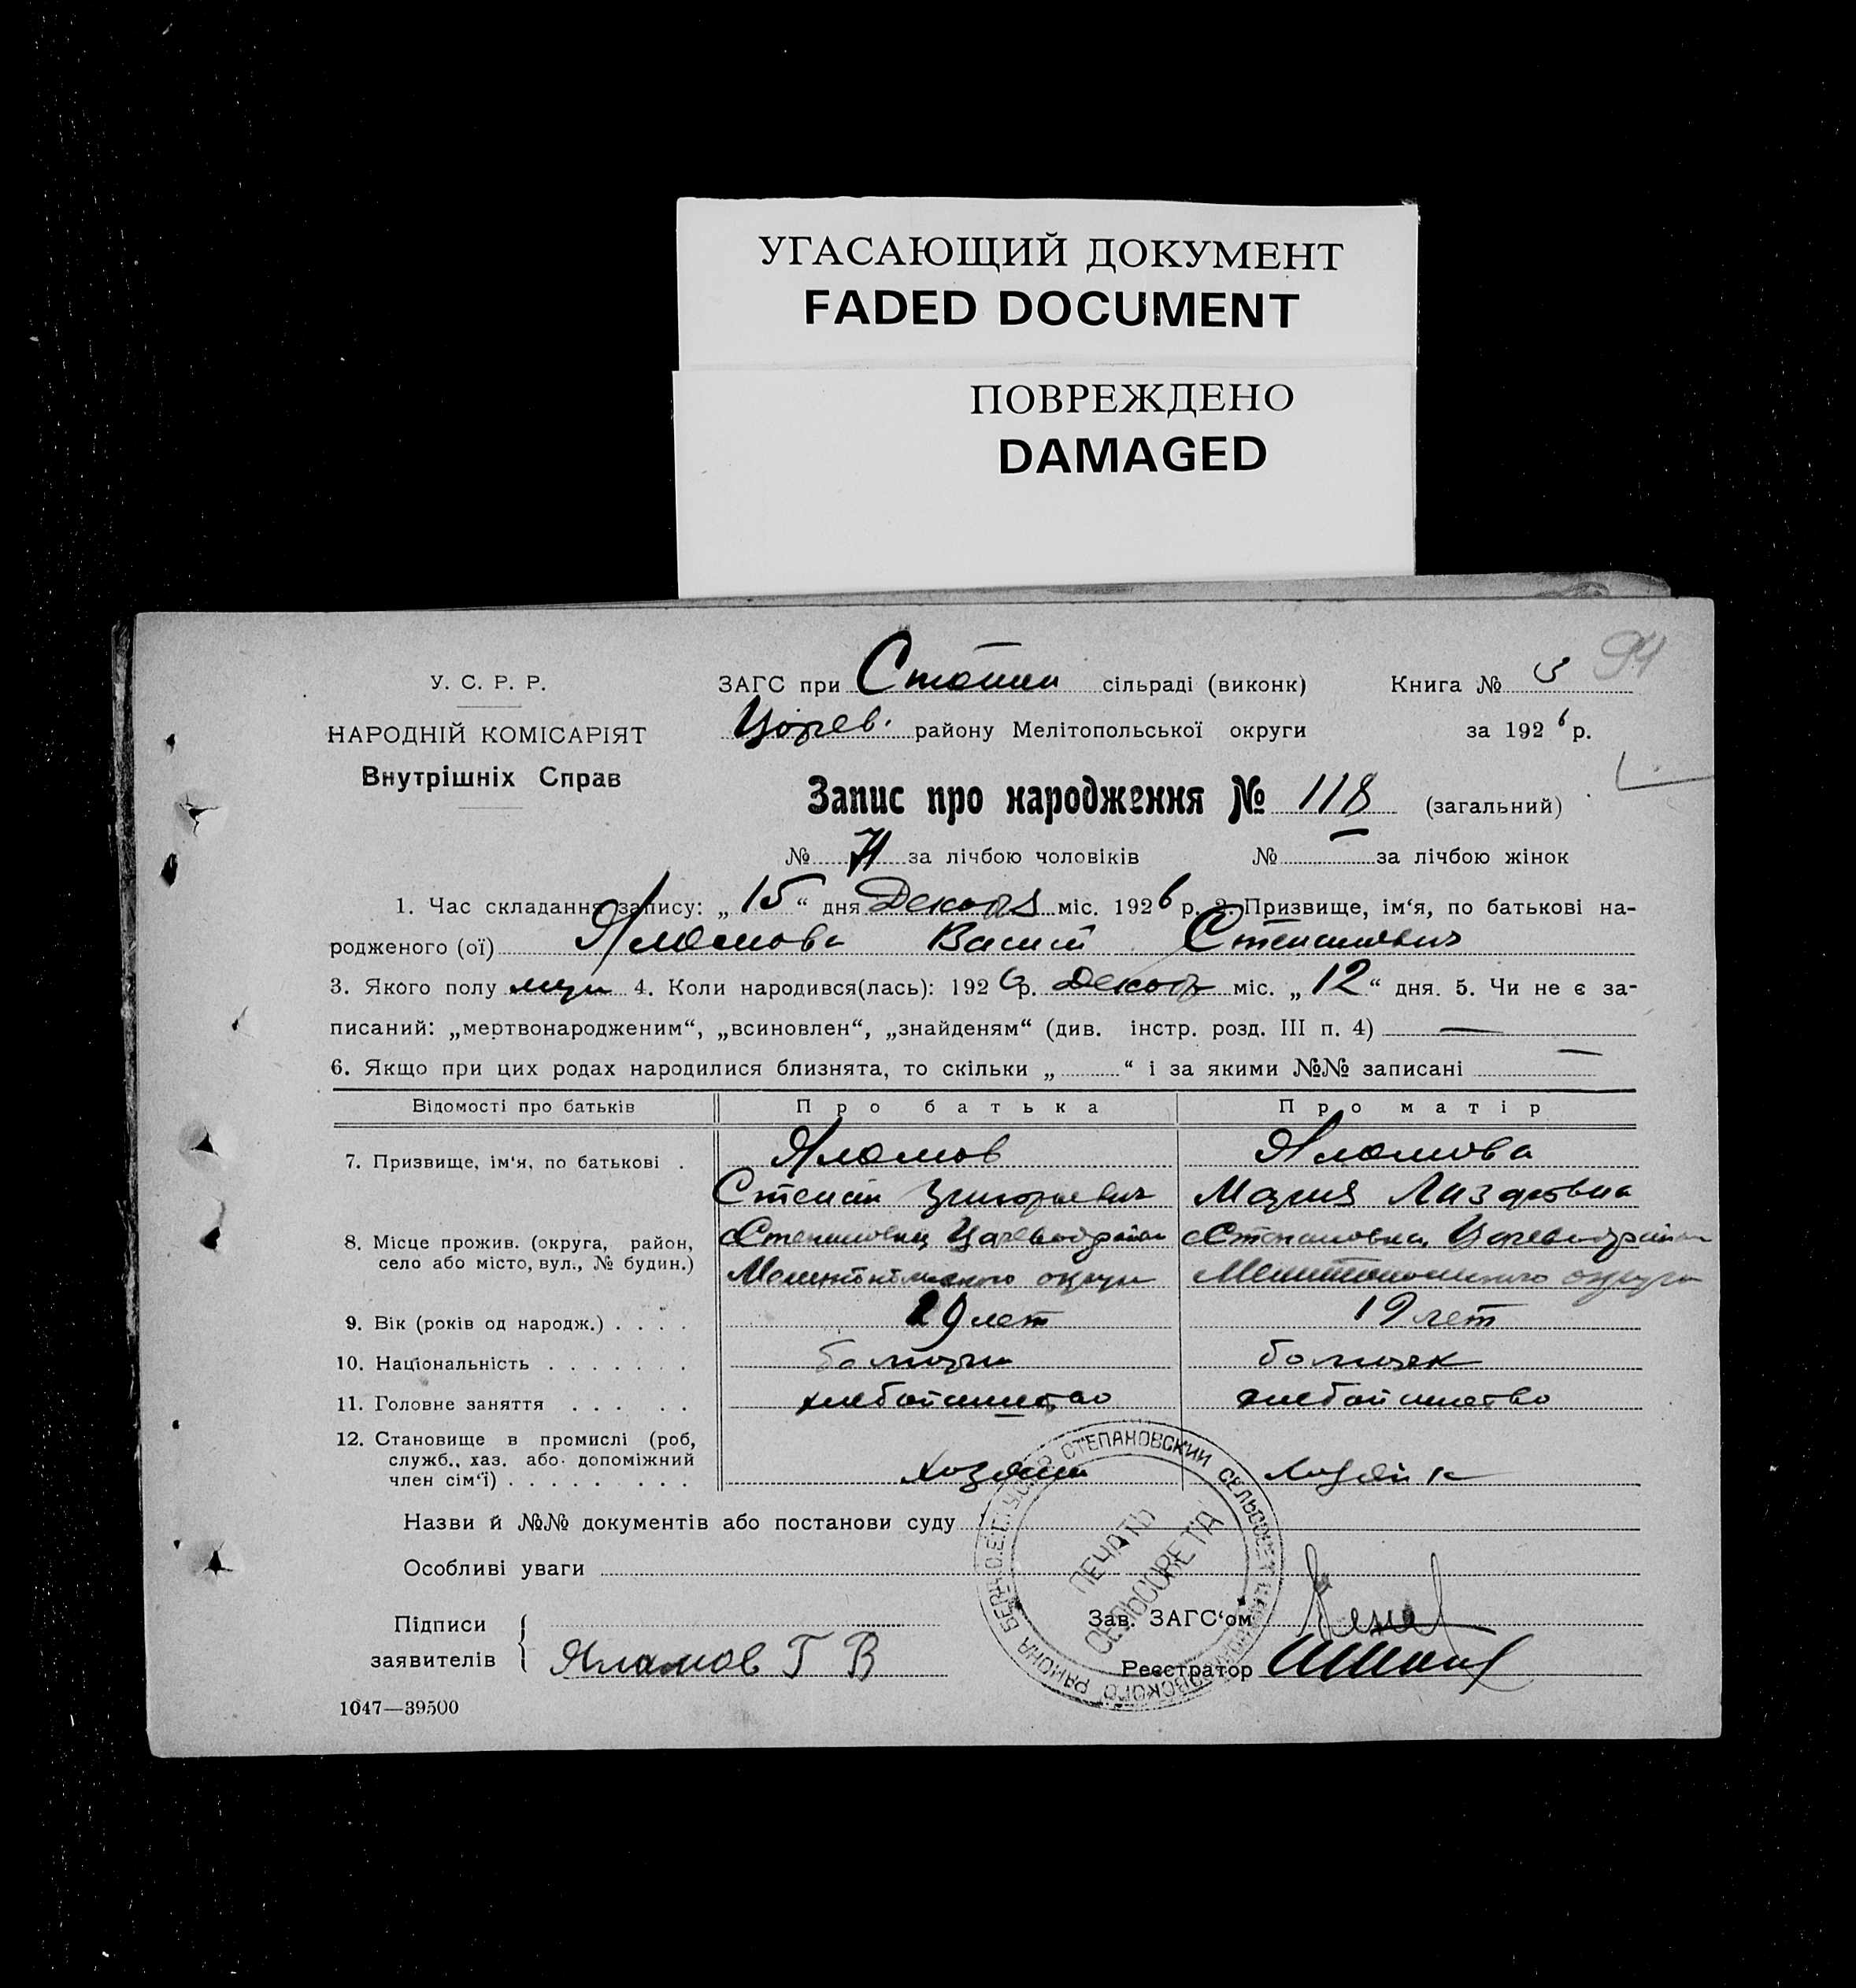 УГАСАЮЩИЙ ДОКУМЕНТ
FADED DOCUMENT
ПОВРЕЖДЕНО
DAMAGED
94
У. С. Р. Р.
НАРОДНІЙ КОМІСАРІЯТ
Внутрішніх Справ
ЗАГС при сільраді (виконк) Книга № 3
Царев. району Мелітопольської округи за 1926 р.
Запис про народження № 118 (загальний)
№ 71 за лічбою чоловіків № — за лічбою жінок
1. Час складання запису: „15“ дня Декабря міс. 1926 р. 2. Призвище, ім‘я, по батькові на-
родженого (ої) Степанович
3. Якого полу муж 4. Коли народився(лась): 1926 р. Декабр міс. „12“ дня. 5. Чи не є за-
писаний: „мертвонародженим“, „всиновлен“, „знайденям“ (див. інстр. розд. III п. 4) —
6. Якщо при цих родах народилися близнята, то скільки „ “ і за якими №№ записані —
Відомості про батьків Про батька Про матір
7. Призвище, ім‘я, по батькові . Яламов Яламова
Степан Григорьевич Мария Лазаревна
8. Місце прожив. (округа, район,
село або місто, вул., № будин.)
Степановка Степановка
Мелитопольского округа Мелитопольского округа
9. Вік (років од народж.) . . . . 29 лет 19 лет
10. Національність . . . . . . .
11. Головне заняття . . . . . хлебопашество хлебопашество
12. Становище в промислі (роб,
служб., хаз. або допоміжний
член сім‘ї) . . . . . . . . хозяин
Назви й №№ документів або постанови суду
Особливі уваги
СТЕПАНОВСКИЙ СЕЛЬСОВЕТ
РАЙОНА
ПЕЧАТЬ
СЕЛЬСОВЕТА
Підписи
заявителів Яламов Г В
Зав. ЗАГС‘ом
Реєстратор
1047—39500